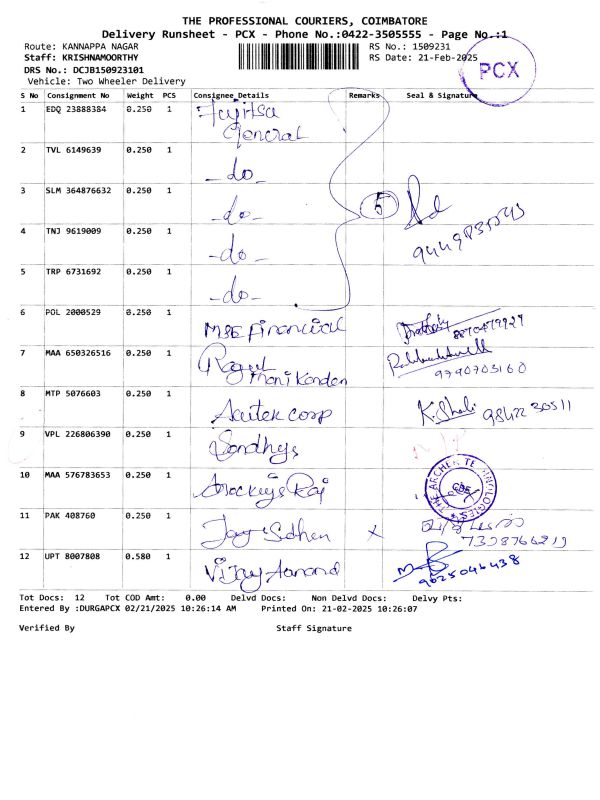 THE PROFESSIONAL COURIERS, COIMBATORE
Delivery Runsheet - PCX - Phone No.:0422-3505555 - Page No.:1
Route: KANNAPPA NAGAR
RS No.: 1509231
Staff: KRISHNAMOORTHY
RS Date: 21-Feb-2025
DRS No.: DCJB150923101
Vehicle: Two Wheeler Delivery
PCX
S No Consignment No Weight PCS Consignee Details Remarks Seal & Signature
1 EDQ 23888384 0.250 1 Fujitsu
General
2 TVL 6149639 0.250 1 -do-
3 SLM 364876632 0.250 1 -do- 5
4 TNJ 9619009 0.250 1 -do-
5 TRP 6731692 0.250 1 -do-
6 POL 2000529 0.250 1 MSE Financial 8870479927
7 MAA 650326516 0.250 1 Ragul
Manikandan 9790703160
8 MTP 5076603 0.250 1 Aaitek corp K. Shali 98422 30511
9 VPL 226806390 0.250 1 Sandhya
10 MAA 576783653 0.250 1 Arockiya Raj CBE
11 PAK 408760 0.250 1 Jay Sidhen x
7398766219
12 UPT 8007808 0.580 1 Vijay Aanand 9625046438
Tot Docs: 12 Tot COD Amt: 0.00 Delvd Docs: Non Delvd Docs: Delvy Pts:
Entered By :DURGAPCX 02/21/2025 10:26:14 AM Printed On: 21-02-2025 10:26:07
Verified By Staff Signature